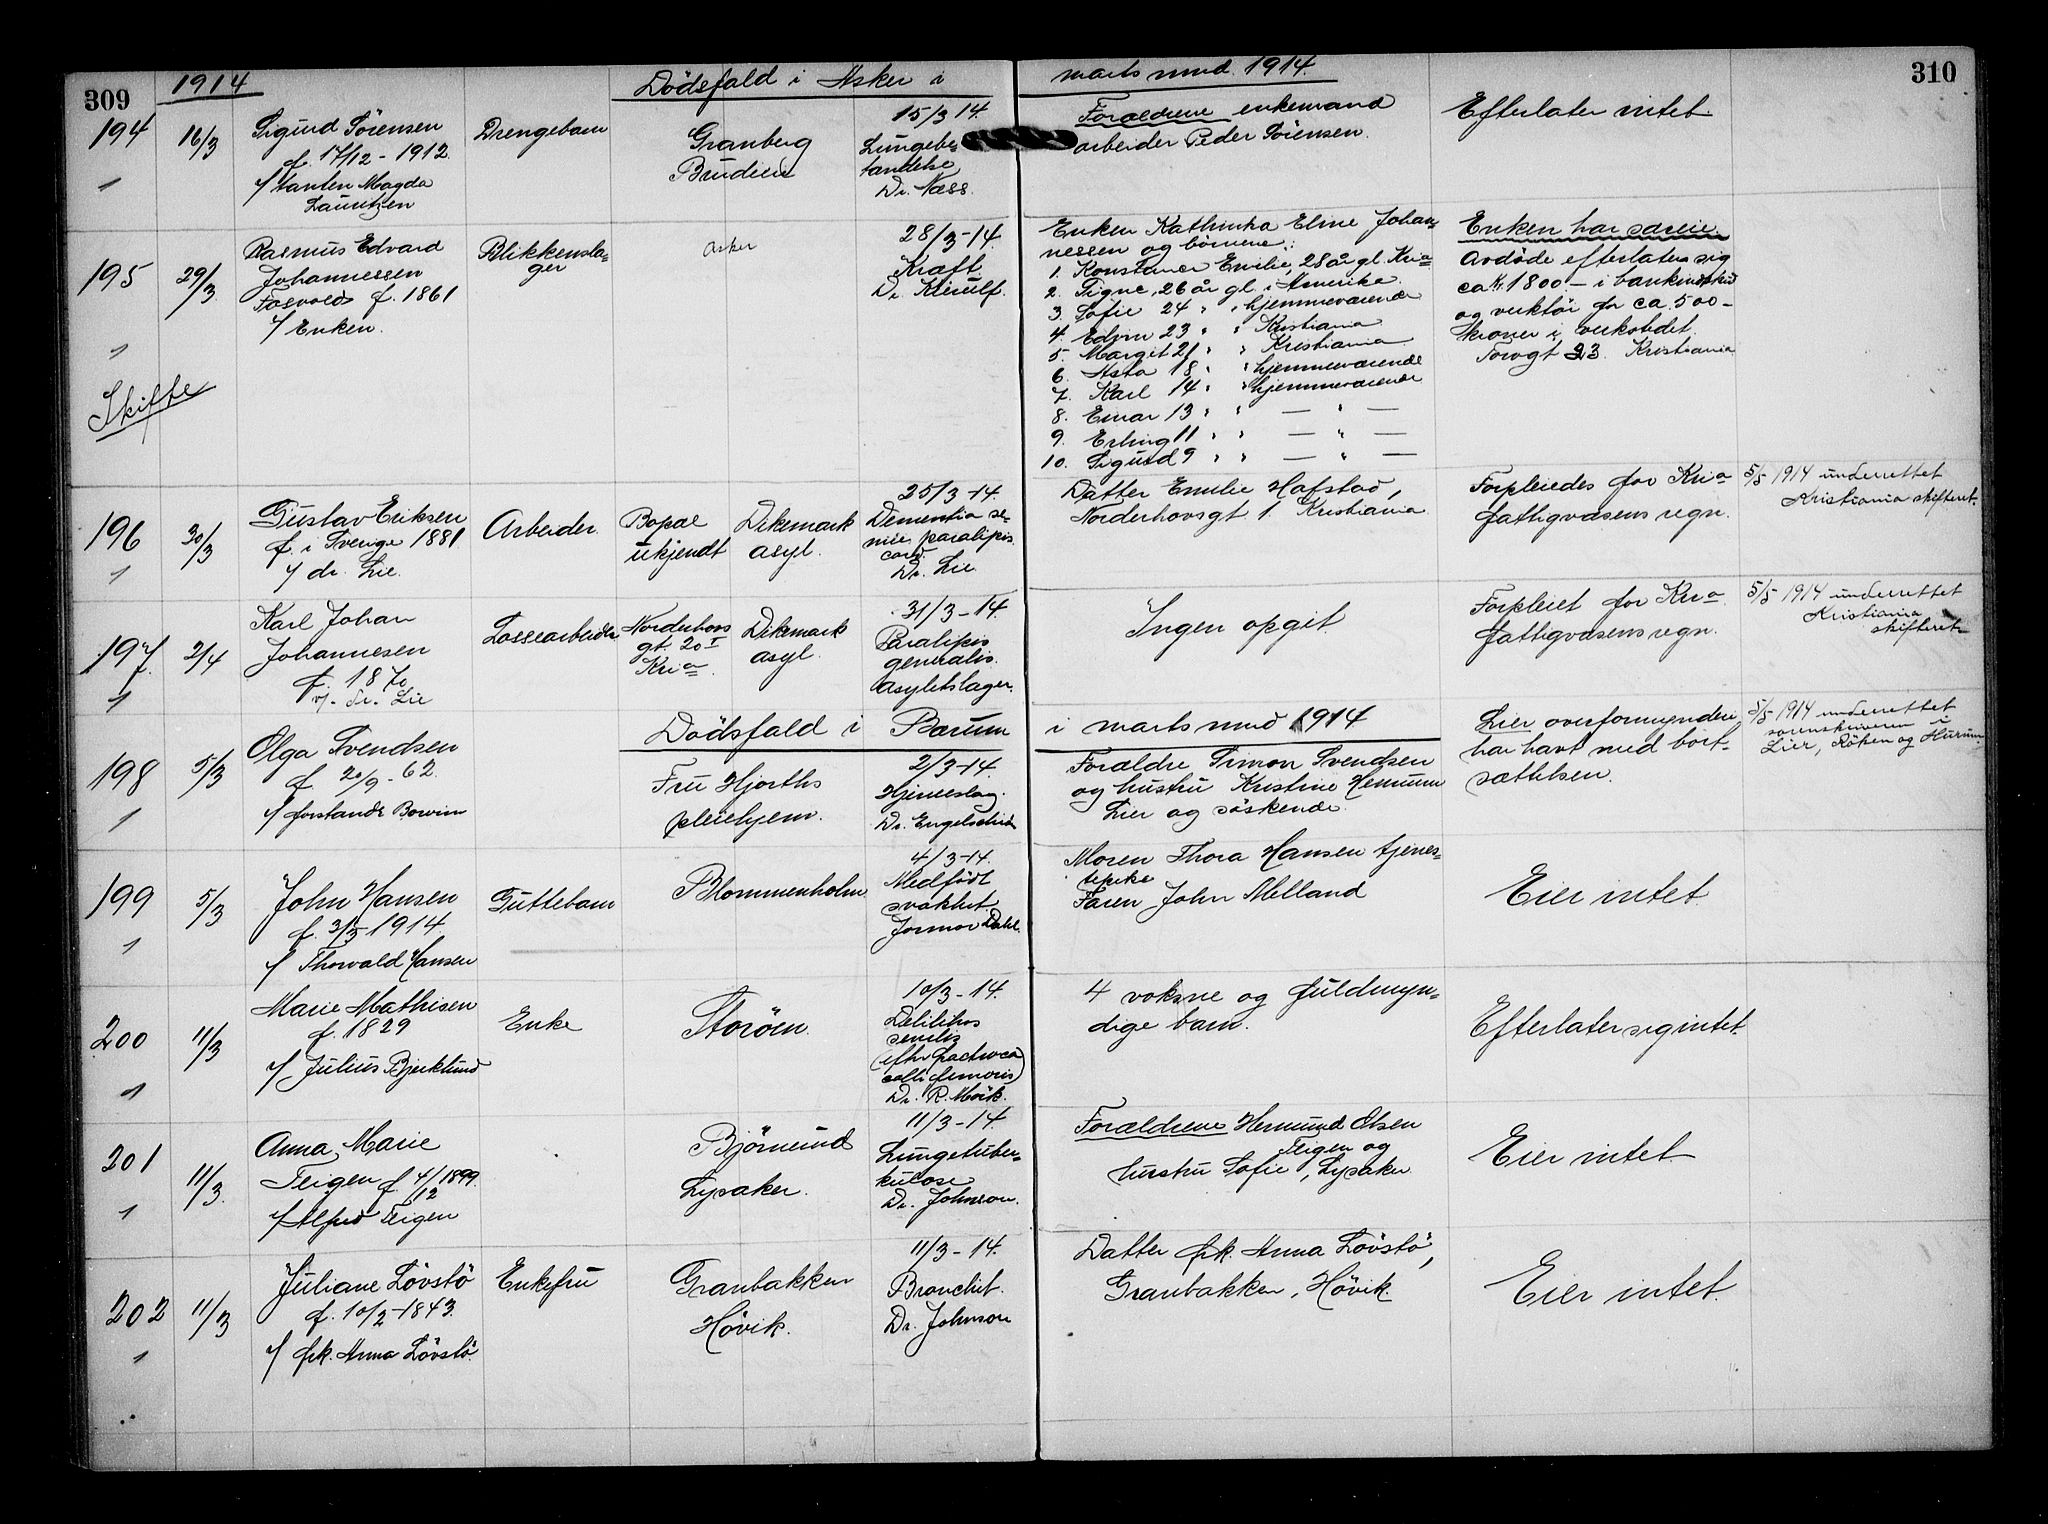 309
1914
Dødsfald i Asker i
marts mnd. 1914.
310
194
1
16/3
Sigurd Sörensen
f. 17/12 - 1912.
v/ tanten Magda
Lauritzen
Drengebarn
Granberg
15/3 14.
Lungebe-
tændelse
Dr. Næss.
Forældrene enkemand
arbeider Peder Sörensen.
Efterlater intet
195
1
Skifte
29/3
Rasmus Edvard
Johannessen
f. 1861
v/ Enken.
Blikkensla-
ger
Asker
28/3 - 14.
Kræft
Dr. Kierulf.
Enken Kathinka Eline Johan-
nessen og börnene:
1. Konstance Emilie, 28 år gl. Kria
2. Signe, 26 år gl. i Amerika.
3. Sofie 24 " " hjemmeværende
4. Edvin 23 " " Kristiania
5. Margit 21 " " Kristiania
6. Asta 18 " " hjemmeværende
7. Karl 14 " " hjemmeværende
8. Einar 13 " " — " —
9. Erling 11 " " — " —
10. Sigurd 9 " " — " —
Enken har særeie.
Avdöde efterlater sig
ca kr. 1800.- i bankinskud
og verktöi for ca. 500 -
kroner i verkstedet.
Torvgt 23. Kristiania
196
1
30/3
Gustav Eriksen
f. i Sverige 1881
v/ dr. Lie.
Arbeider.
Bopæl
ukjendt
Dikemark
asyl.
25/3 - 14.
Dementia se-
nile, paralysis
cord.
Dr. Lie.
Datter Emilie Hafstad,
Norderhovsgt 1. Kristiania
Forpleiedes for Kria
fattigvæsens regn.
5/5 1914 underrettet
Kristiania skifteret.
197.
1
2/4
Karl Johan
Johannesen
f. 1870
v/. dr. Lie
Lossearbeider
Norderhovs
gt. 20 I
Kria.
Dikemark
asyl.
31/3 - 14.
Paralysis
generalis.
Asylets læger.
Ingen opgit.
Forpleiet for Kria.
fattigvæsens regn.
5/5 1914 underrettet
Kristiania
skifteret
Dødsfald i Bærum
i marts mnd 1914
198
1
5/3
Olga Svendsen
f. 20/9 - 62.
v/ forstander
Fru Hjorths
pleiehjem.
2/3 - 14.
Hjerneslag.
Dr. Engelschiön
Forældre Simon Svendsen
og hustru Kristine
Lier og söskende.
Lier overformynderi
har havt med bort-
sættelsen.
5/5 1914 underrettet
sorenskriveren i
Lier, Röken og Hurum
199
1
5/3
John Hansen
f. 3/3 1914.
v/ Thorvald Hansen
Guttebarn
Blommenholm
4/3 - 14.
Medfödt
svakhet
Jormor Dahl.
Moren Thora Hansen tjenes-
tepike
Faren John Melland
Eier intet
200
1
11/3
Marie Mathisen
f. 1829
v/ Julius Bjerklund
Enke
Storöen.
10/3 - 14.
senilis
(efter fractura
colli femoris)
Dr. R. Mörk.
4 voksne og fuldmyn-
dige barn.
Efterlater sig intet.
201
1
11/3.
Anna Marie
Teigen f. 4/12 1899.
v/ Alfred Teigen
Björnsund
Lysaker.
11/3 - 14.
Lungetuber-
kulose
Dr. Johnson.
Forældrene Hermund Olsen
Teigen og
hustru Sofie, Lysaker
Eier intet.
202
1
11/3
Juliane Lövstö
f. 10/2 - 1843.
v/ frk. Anna Lövstö.
Enkefru
Granbakken
Hövik.
11/3 - 14.
Bronchit.
Dr. Johnson
Datter frk. Anna Lövstö,
Granbakken, Hövik.
Eier intet.